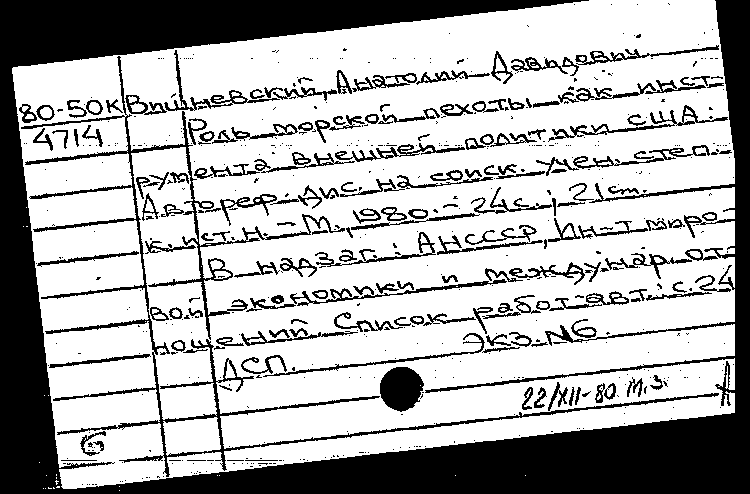 80-50к Вишневский, Анатолий Давидович.
4714 Роль морской пехоты как инст-
румента внешней политики США:
Автореф. дис. на соиск. учен. степ.
к. ист. н. - М., 1980. - 24 с.; 21 ст.
В надзаг.: АНСССР, Ин-т миро-
вой экономики и междунар. от-
ношений. Список работ авт.: с. 24
ДСП. Экз. №6.
22/XII-80 М.З. А
6